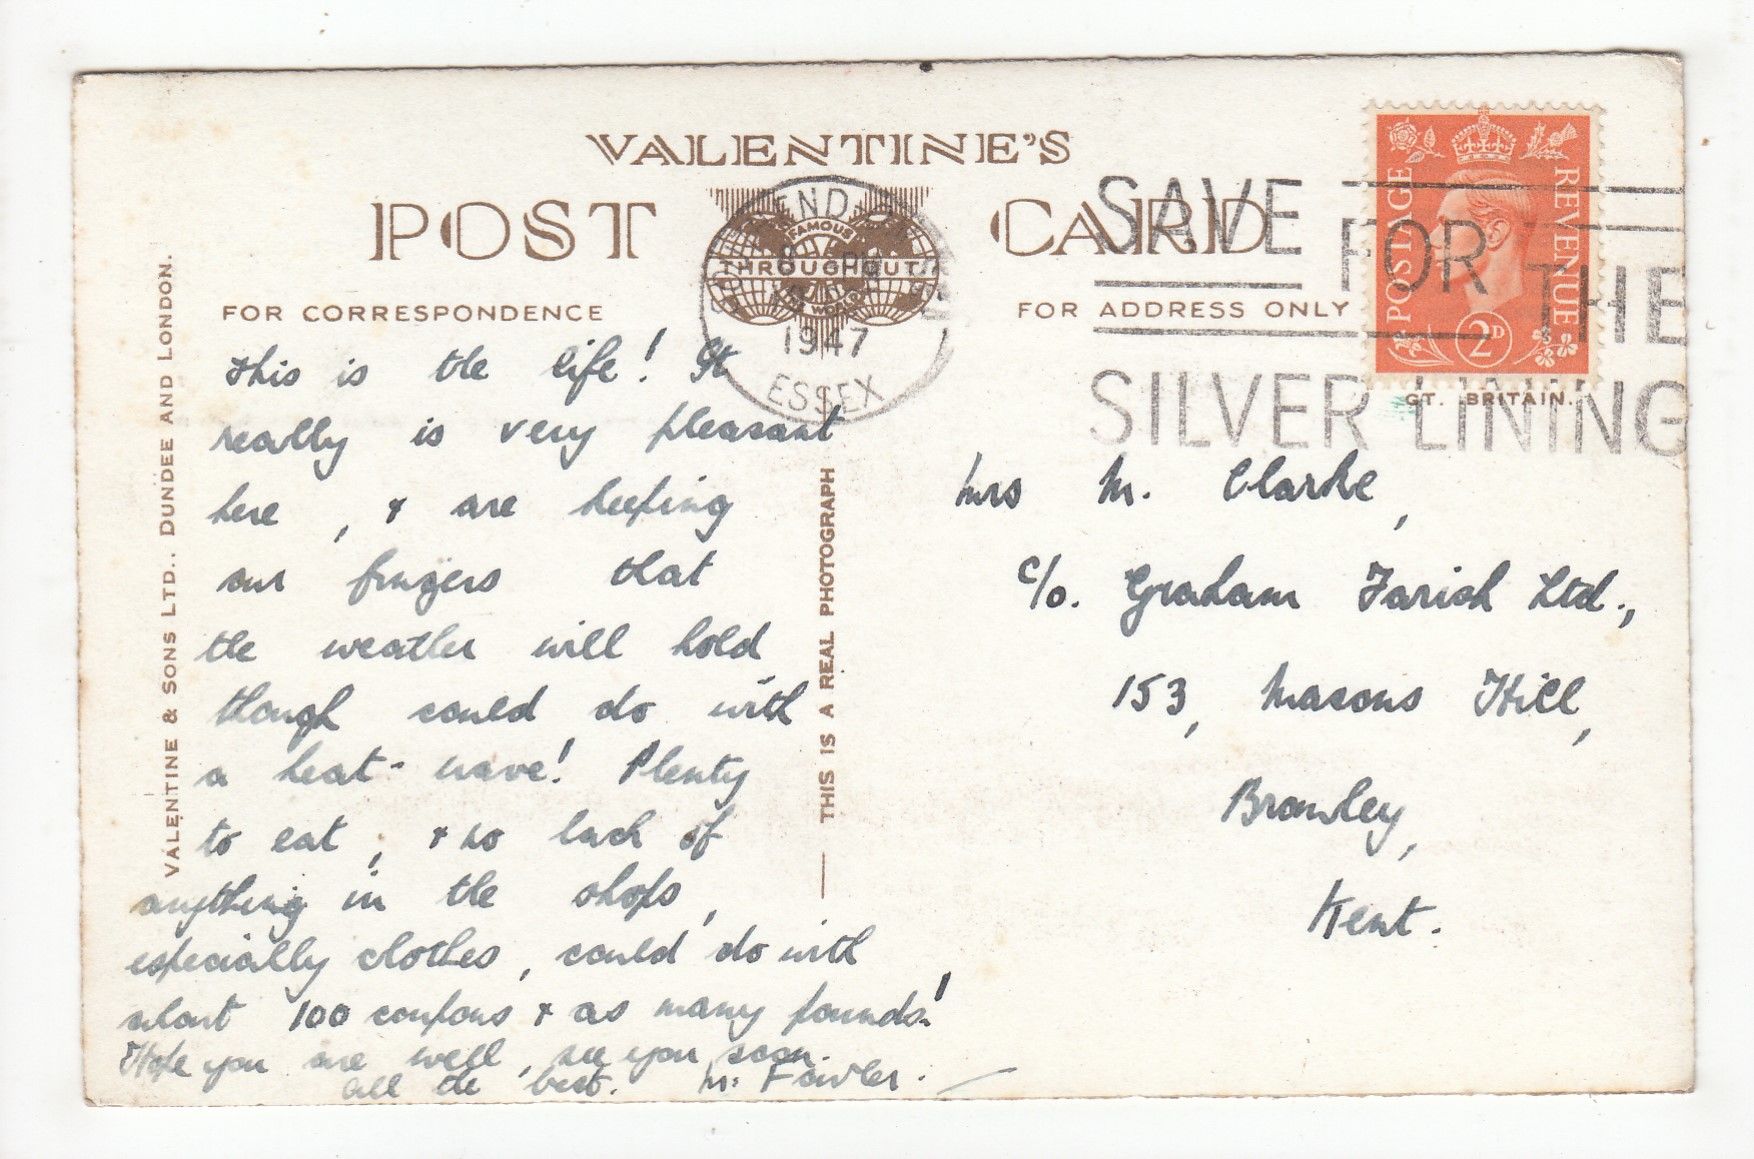 VALENTINE'S
POST CARD
FAMOUS
THROUGHOUT
WORLD
1947
ESSEX
SAVE
FOR
THE
SILVER LINING
POSTAGE
REVENUE
2D
GT. BRITAIN.
FOR CORRESPONDENCE
FOR ADDRESS ONLY
VALENTINE & SONS LTD., DUNDEE AND LONDON.
THIS IS A REAL PHOTOGRAPH
This is the life! It
really is very pleasant
here, & are keeping
our fingers that
the weather will hold
though could do with
a heat-wave! Plenty
to eat, & no lack of
anything in the shops,
especially clothes, could do with
about 100 coupons & as many pounds!
Hope you are well, see you soon.
All the best. M. Fowler.
Mrs M. Clarke,
c/o. Graham Farish Ltd.,
153, Masons Hill,
Bromley,
Kent.